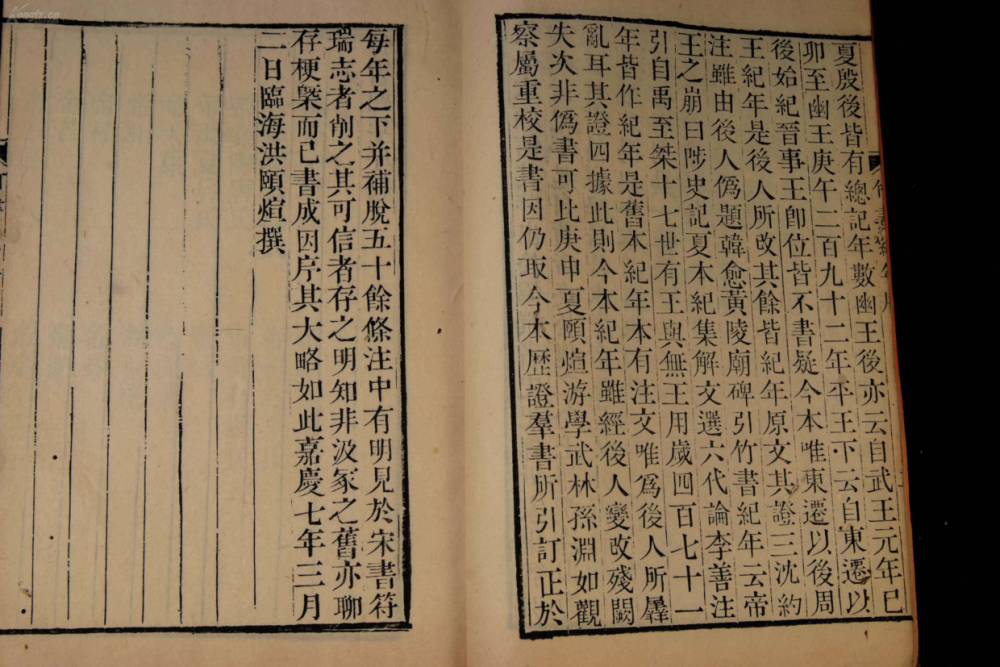 夏殷後皆有總記年數幽王後亦云自武王元年己
卯至幽王庚午二百九十二年平王下云自東遷以
後始紀晉事王卽位皆不書疑今本唯東遷以後周
王紀年是後人所改其餘皆紀年原文其證三沈約
注雖由後人僞題韓愈黃陵廟碑引竹書紀年云帝
王之崩曰陟史記夏本紀集解文選六代論李善注
引自禹至桀十七世有王與無王用歲四百七十一
年皆作紀年是舊本紀年本有注文唯爲後人所羼
亂耳其證四據此則今本紀年雖經後人變改殘闕
失次非僞書可比庚申夏頤煊游學武林孫淵如觀
察屬重校是書因仍取今本歷證羣書所引訂正於
每年之下并補脫五十餘條注中有明見於宋書符
瑞志者削之其可信者存之明知非汲冢之舊亦聊
存梗槩而已書成因序其大略如此嘉慶七年三月
二日臨海洪頤煊撰